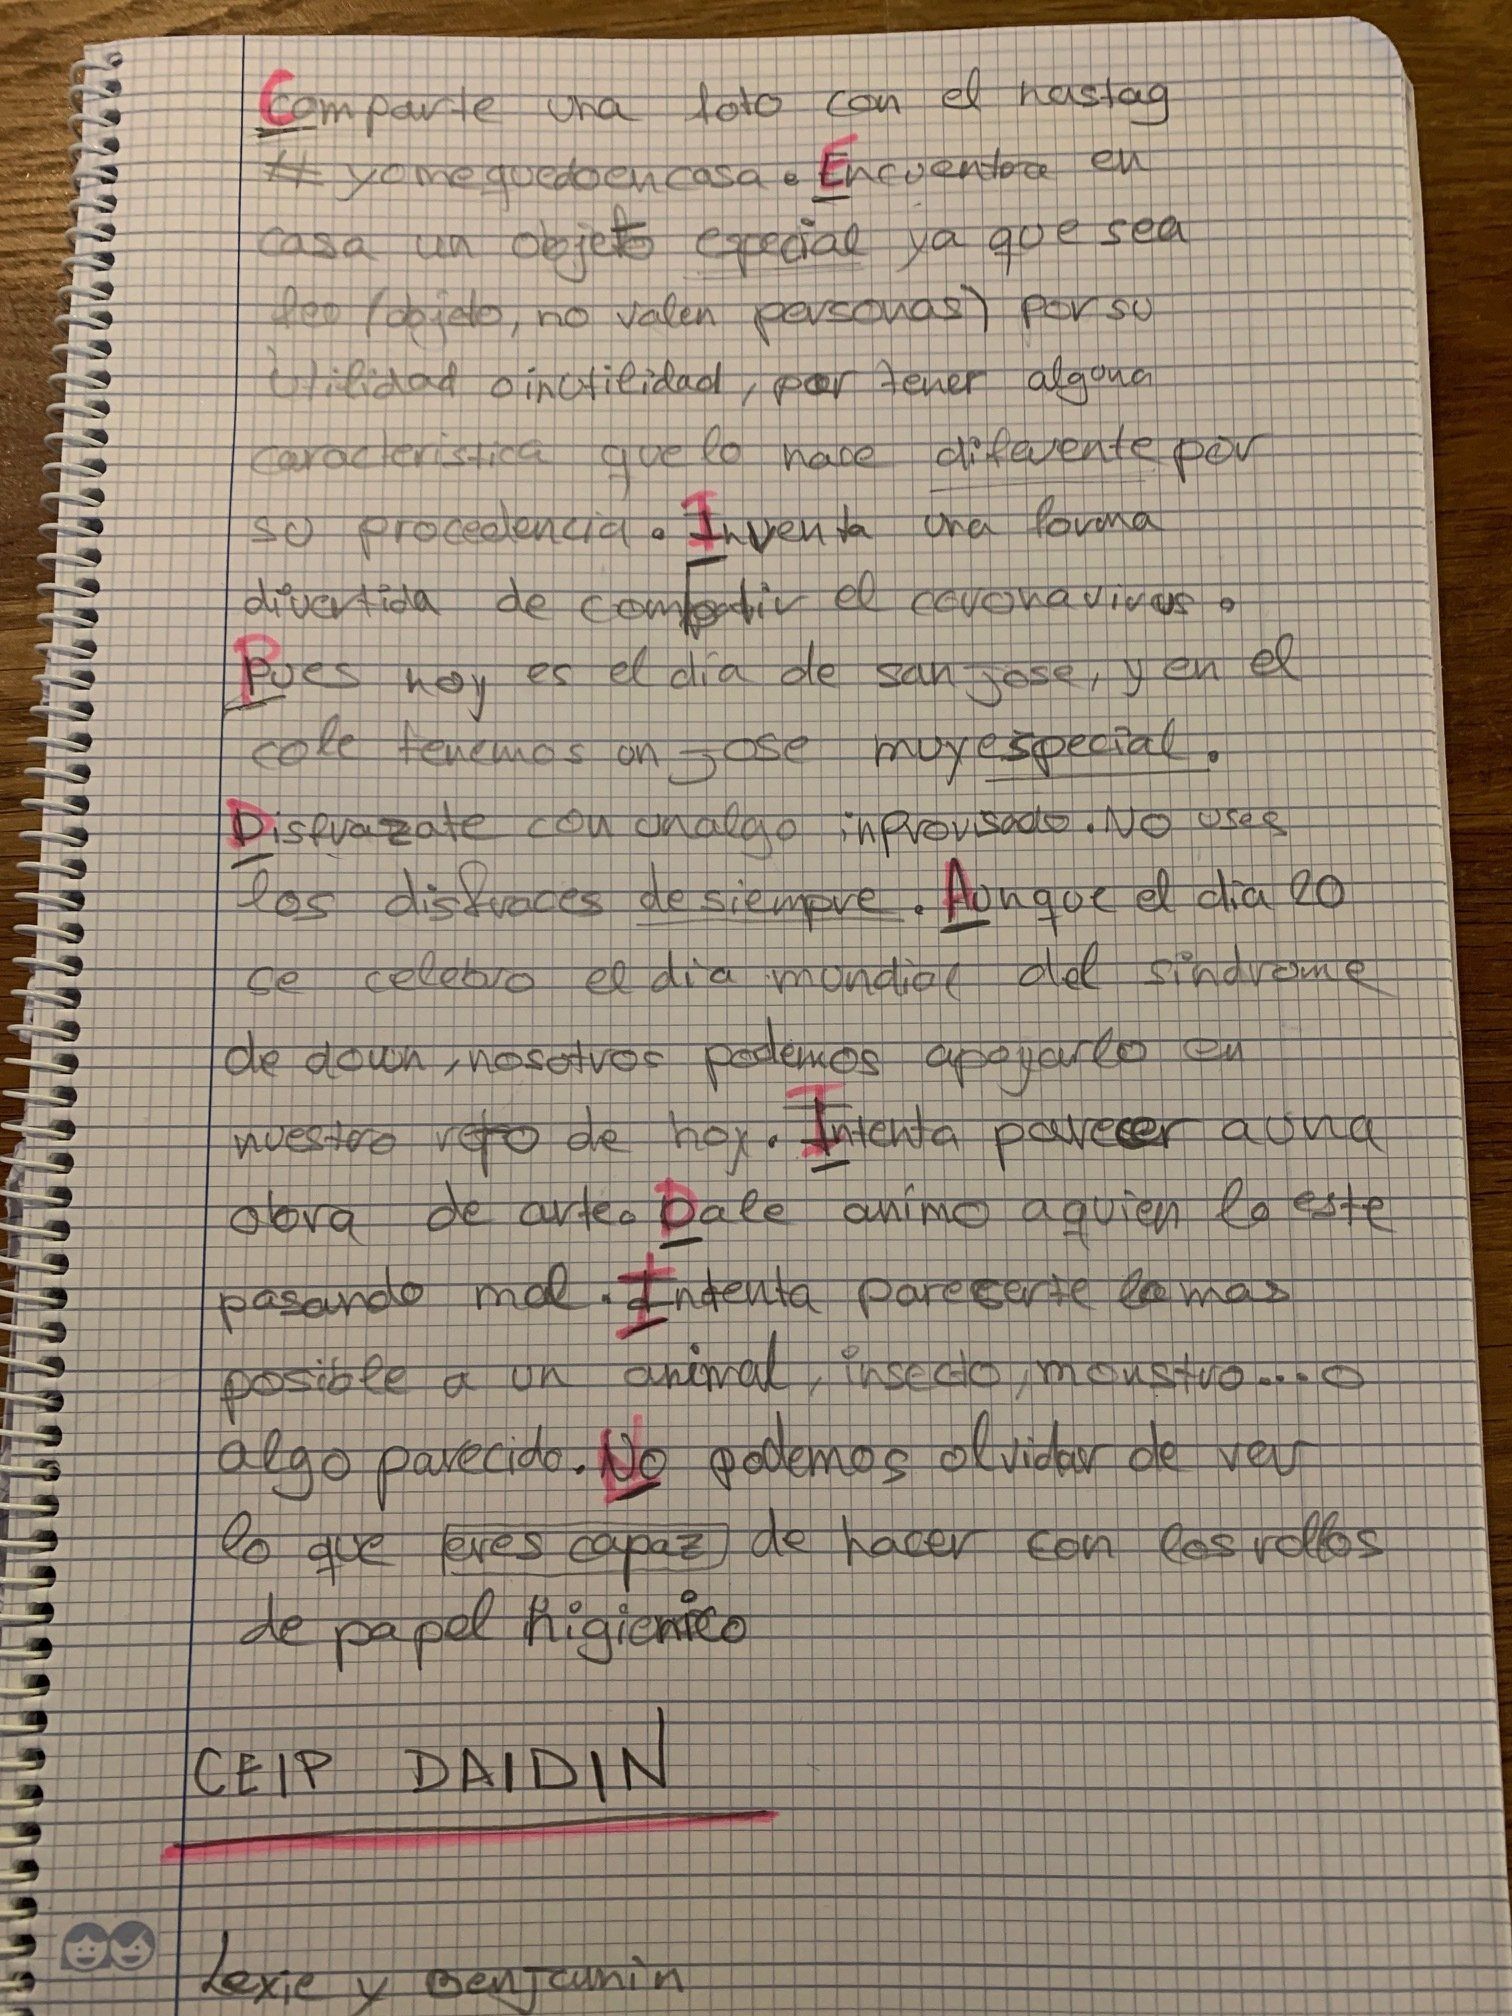 Comparte una foto con el hastag
# yomequedoencasa. Encuentra en
casa un objeto especial ya que sea
feo (objeto, no valen personas) por su
utilidad o inutilidad, por tener alguna
caracteristica que lo hace diferente por
su procedencia. Inventa una forma
divertida de compatir el coronavirus.
Pues hoy es el dia de san jose, y en el
cole tenemos un jose muy especial.
Disfrazate con un algo inprovisado. No uses
los disfraces de siempre. Aunque el dia 20
se celebro el dia mundial del sindrome
de down, nosotros podemos apoyarlo en
nuestro reto de hoy. Intenta parecer a una
obra de arte. Dale animo a quien lo este
pasando mal. Intenta parecerte lo mas
posible a un animal, insecto, monstruo... o
algo parecido. No podemos olvidar de ver
lo que eres capaz de hacer con los rollos
de papel higienico
CEIP DAIDIN
Lexie y Benjamin